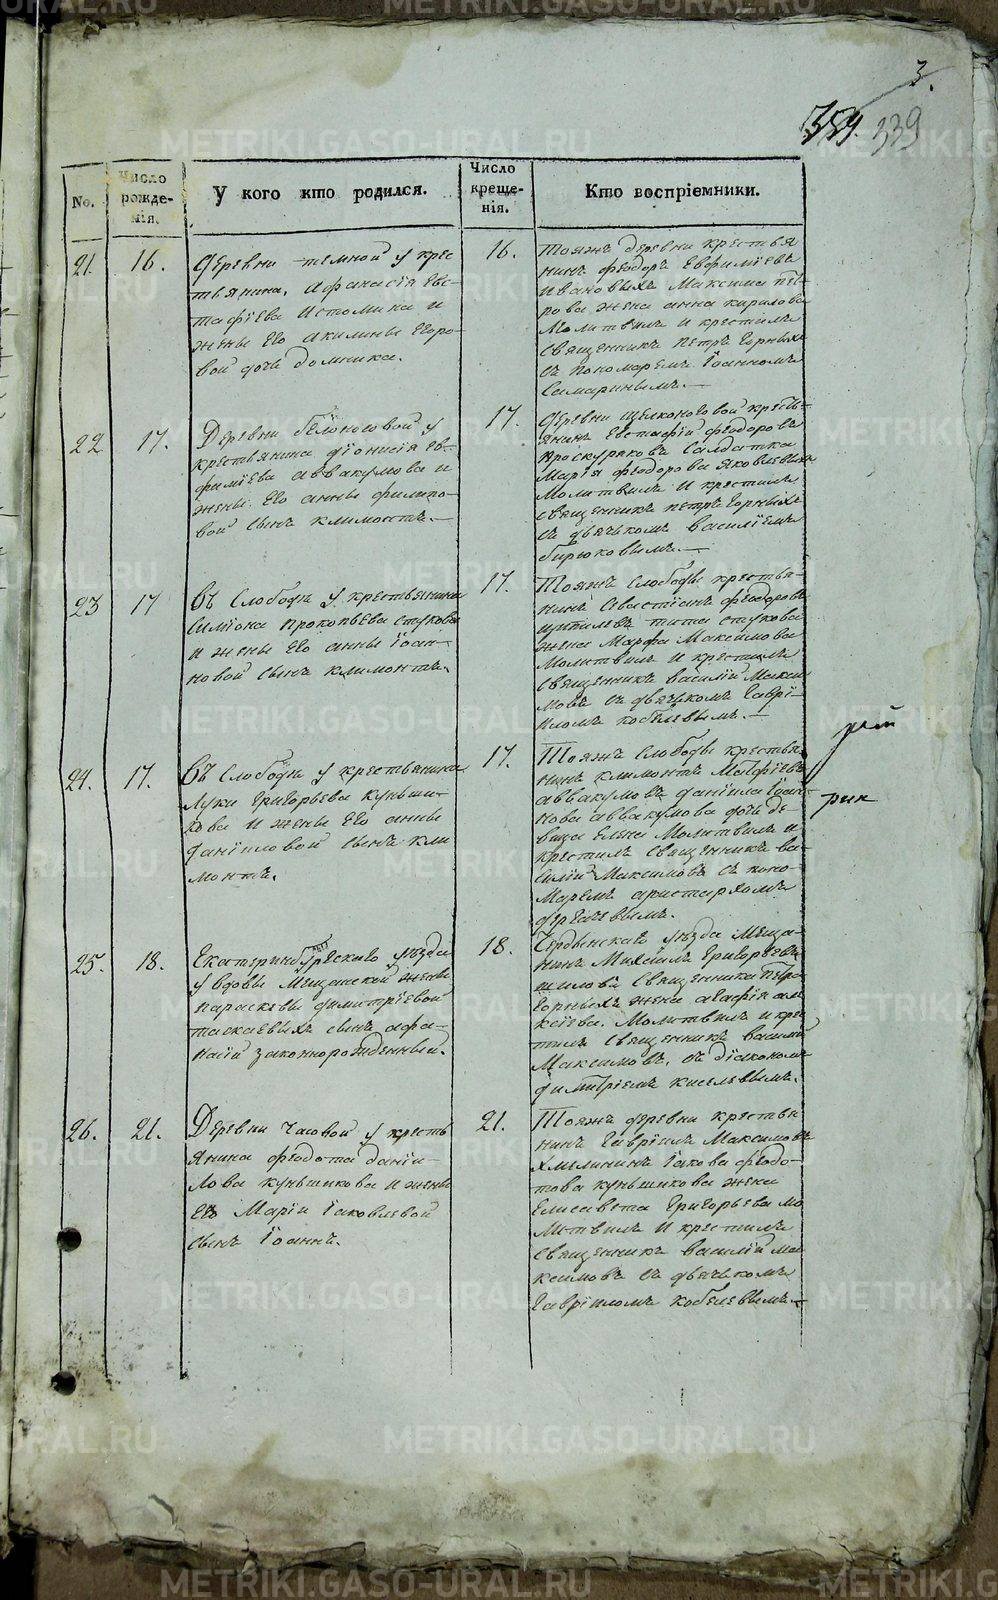 3.
359. 339
No.
Число рожденія.
У кого кто родился.
Число крещенія.
Кто воспріемники.
21. 16.
Деревни темной у крес
тьянина, Афанасія Евс
тафіева Истомина и
жены его акилины Егоро
вой дочь домника.
16.
Тояжъ деревни крестья
нинъ феодоръ Евфиміевъ
Ивановыхъ Максима пет
рова жена анна кирилова
Молитвилъ и крестилъ
Священникъ петръ Горныхъ
съ пономаремъ Іоанномъ
Самаринымъ.—
22 17.
Деревни белоноговой у
крестьянина діонисія Ев-
фиміева аввакумова и
жены его анны филипо-
вой сынъ климонтъ.—
17.
Деревни щелконоговой кресть-
янинъ Евстафій феодоровъ
проскуряковъ Салдатка
Марія феодорова яковлевыхъ
Молитвилъ и крестилъ
Священникъ петръ Горныхъ
съ дьячькомъ Василіемъ
бирюковымъ.—
23 17
Въ Слободѣ у крестьянина
Симіона прокопьева стукова
и жены его анны Іоан-
новой сынъ климонтъ.
17.
Тояжъ Слободы крестья-
нинъ Севастіанъ феодоровъ
тита стукова
жена Марфа Максимова
Молитвилъ и крестилъ
Священникъ василій Макси
мовъ съ дьячькомъ Гаврі-
иломъ кобелевымъ.—
24. 17.
Въ Слободѣ у крестьянина
Луки Григорьева куньши-
кова и жены его анны
даніиловой сынъ кли
монтъ.
17.
Тояжъ Слободы крестья-
нинъ климонтъ Матфіевъ
аввакумовъ даніила Іоан-
нова аввакумова дочь де-
вица Елена Молитвилъ и
крестилъ Священникъ ва-
силій Максимовъ съ поно-
маремъ аристархомъ
дерягевымъ.
25. 18.
Екатеринбургскаго уѣзда
у вдовы Мещанской жены
параскевы димитріевой
таскаевыхъ сынъ афа-
насій законнорожденный.
18.
Чердынскаго уѣзда Меща-
нинъ Михаилъ Григорьевъ
шиловъ Священника петра
Горныхъ жена агафія але
ксіева. Молитвилъ и крес
тилъ Священникъ василій
Максимовъ, съ діакономъ
димитріемъ киселевымъ.
26. 21.
Деревни часовой у кресть
янина феодота даніи-
лова куньшикова и жены
его Маріи Іаковлевой
сынъ Іоаннъ.
21.
Тояжъ деревни крестья
нинъ Гавріилъ Максимовъ
хмелининъ Іакова феодо-
това куньшикова жена
Елисавета Григорьева мо
литвилъ и крестилъ
Священникъ василій ма
ксимовъ съ дьячькомъ
Гавріиломъ кобелевымъ.—
METRIKI.GASO-URAL.RU